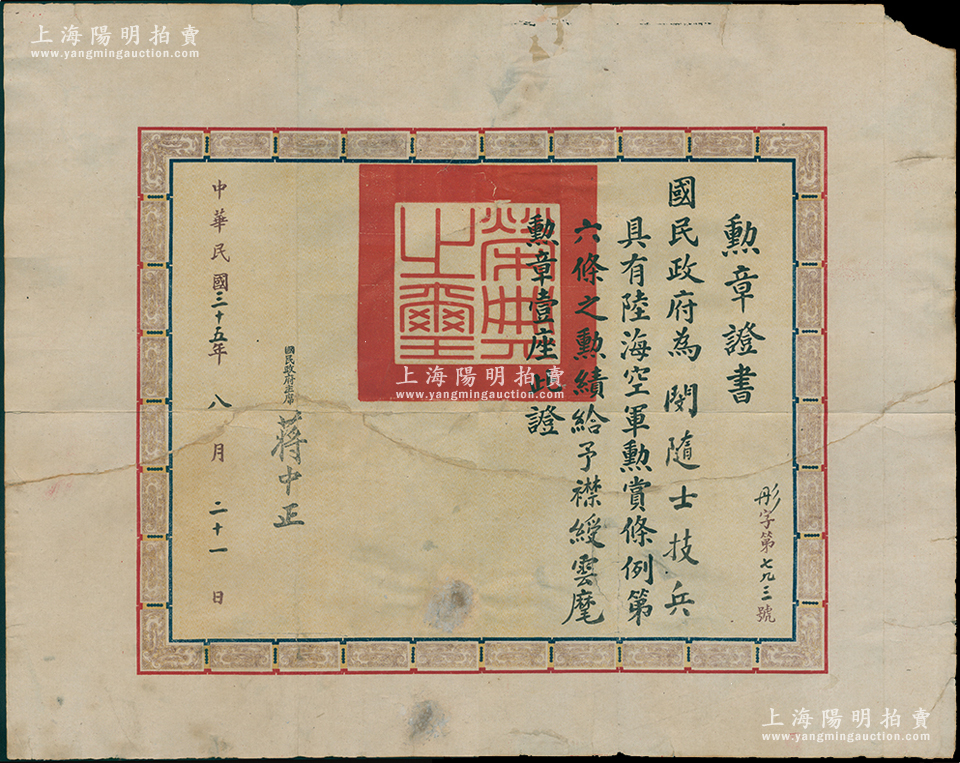 勲章證書
國民政府為閔隨士技兵
具有陸海空軍勲賞條例第
六條之勲績給予襟綬雲麾
勲章壹座此證
榮典之璽
國民政府主席 蔣中正
中華民國三十五年八月二十一日
彤字第七九三號
上海陽明拍賣
www.yangmingauction.com
上海陽明拍賣
www.yangmingauction.com
上海陽明拍賣
www.yangmingauction.com